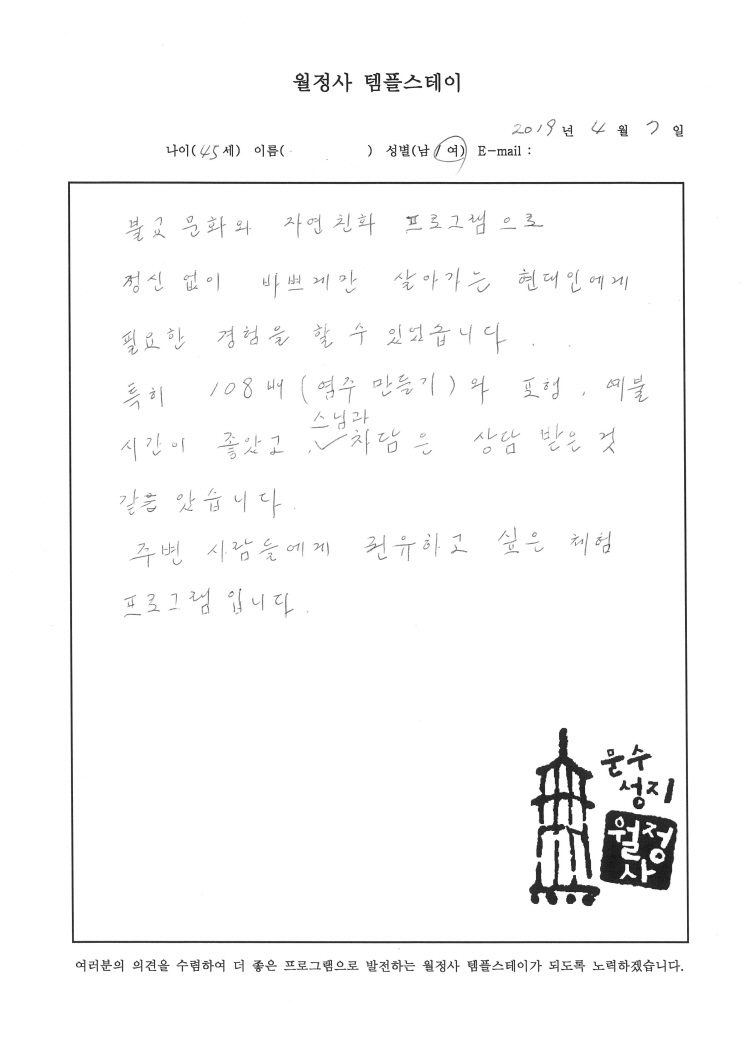 월정사 템플스테이
2019년 4월 7일
나이(45세) 이름( ) 성별(남/여) E-mail :
불교 문화와 자연친화 프로그램으로
정신 없이 바쁘게만 살아가는 현대인에게
필요한 경험을 할 수 있었습니다.
특히 108배(염주 만들기)와 포행, 예불
시간이 좋았고, 스님과 차담은 상담 받은 것
같음 았습니다.
주변 사람들에게 권유하고 싶은 체험
프로그램 입니다.
문수
성지
월정
사
여러분의 의견을 수렴하여 더 좋은 프로그램으로 발전하는 월정사 템플스테이가 되도록 노력하겠습니다.